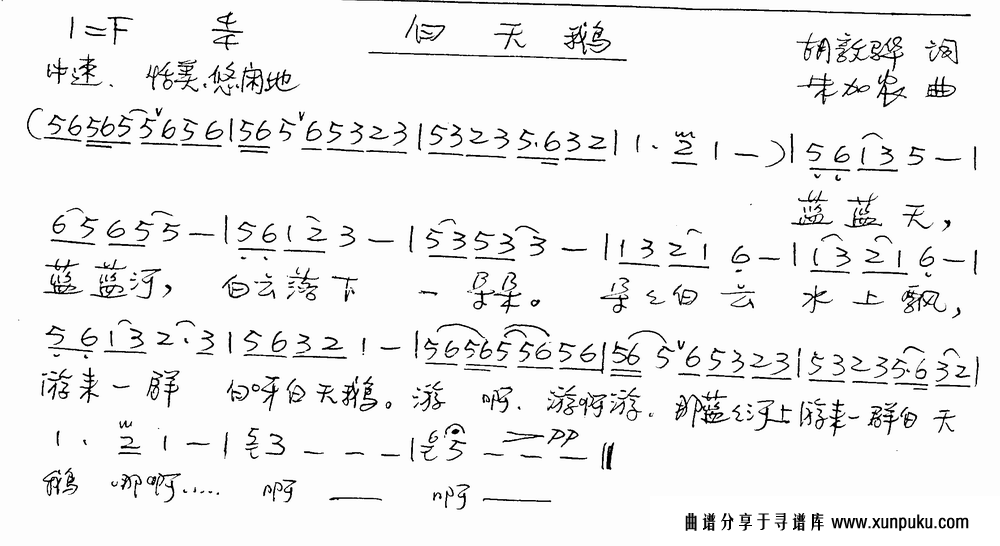 1=F 4/4 白天鹅
胡敦骅 词
中速、恬美、悠闲地
朱加农 曲
(5 6 5 6 5 5 6 5 6 | 5 6 5 6 5 3 2 3 | 5 3 2 3 5. 6 3 2 | 1. 2 1 —) | 5 6 1 3 5 — |
蓝蓝天，
6 5 6 5 5 — | 5 6 1 2 3 — | 5 3 5 3 3 — | 1 3 2 1 6 — | 1 3 2 1 6 — |
蓝蓝河， 白云落下 一朵朵。 朵々白云 水上飘，
5 6 1 3 2. 3 | 5 6 3 2 1 — | 5 6 5 6 5 5 6 5 6 | 5 6 5 6 5 3 2 3 | 5 3 2 3 5. 6 3 2 |
游来一群 白呀白天鹅。游 啊、游啊游、那蓝々河上游来一群白天
1. 2 1 — | 5 3 — — — | 6 5 — — — pp ‖
鹅 那啊…… 啊 —— 啊 ——
曲谱分享于寻谱库 www.xunpuku.com